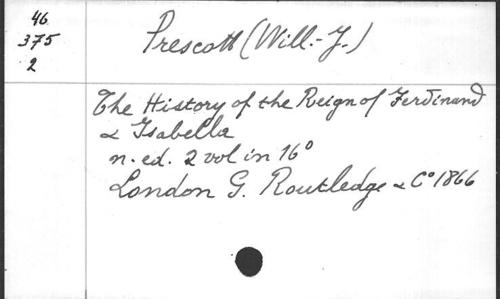 46
375
2
Prescott (Will.-J.)
The History of the Reign of Ferdinand
& Isabella
n. ed. 2 vol in 16°
London G. Routledge & C° 1866